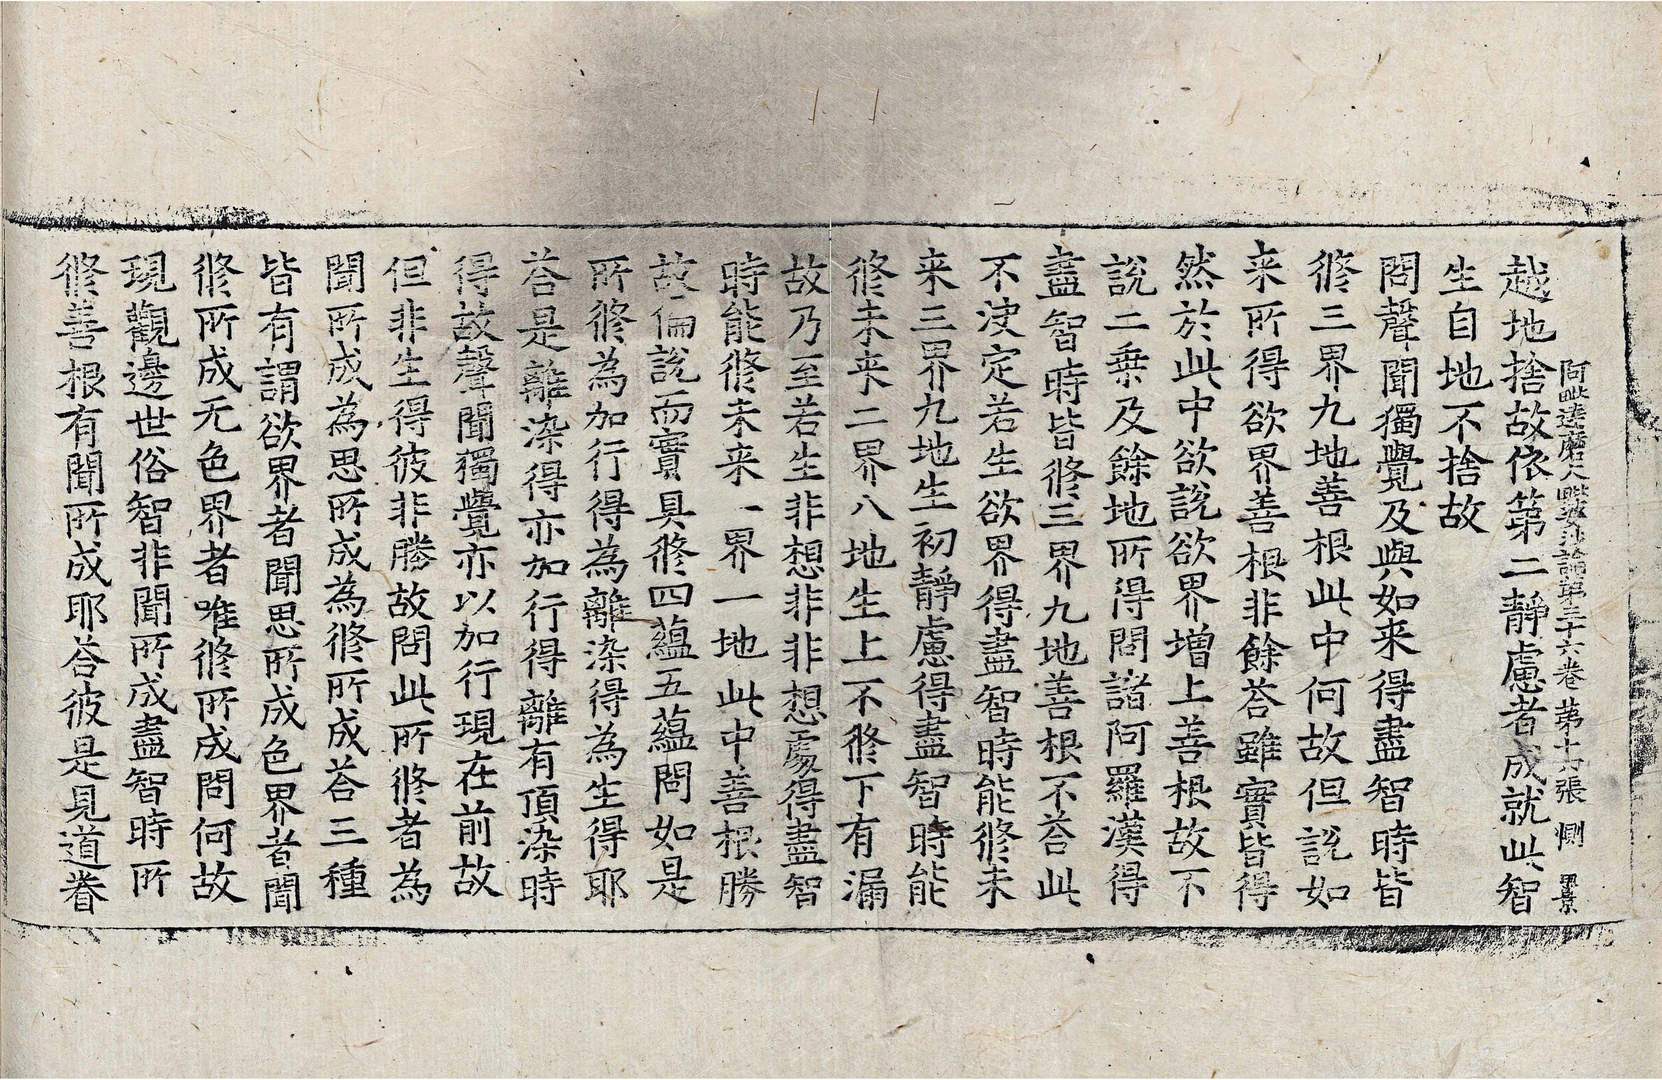 阿毗達磨大毗婆沙論第三十六卷 第十六張 惻 景
越地捨故依第二靜慮者成就此智
生自地不捨故
問聲聞獨覺及與如来得盡智時皆
修三界九地善根此中何故但說如
来所得欲界善根非餘荅雖實皆得
然於此中欲說欲界增上善根故不
說二乘及餘地所得問諸阿羅漢得
盡智時皆修三界九地善根不荅此
不決定若生欲界得盡智時能修未
来三界九地生初靜慮得盡智時能
修未来二界八地生上不修下有漏
故乃至若生非想非非想處得盡智
時能修未来一界一地此中善根勝
故偏說而實具修四蘊五蘊問如是
所修為加行得為離染得為生得耶
荅是離染得亦加行得離有頂染時
得故聲聞獨覺亦以加行現在前故
但非生得彼非勝故問此所修者為
聞所成為思所成為修所成荅三種
皆有謂欲界者聞思所成色界者聞
修所成无色界者唯修所成問何故
現觀邊世俗智非聞所成盡智時所
修善根有聞所成耶荅彼是見道眷